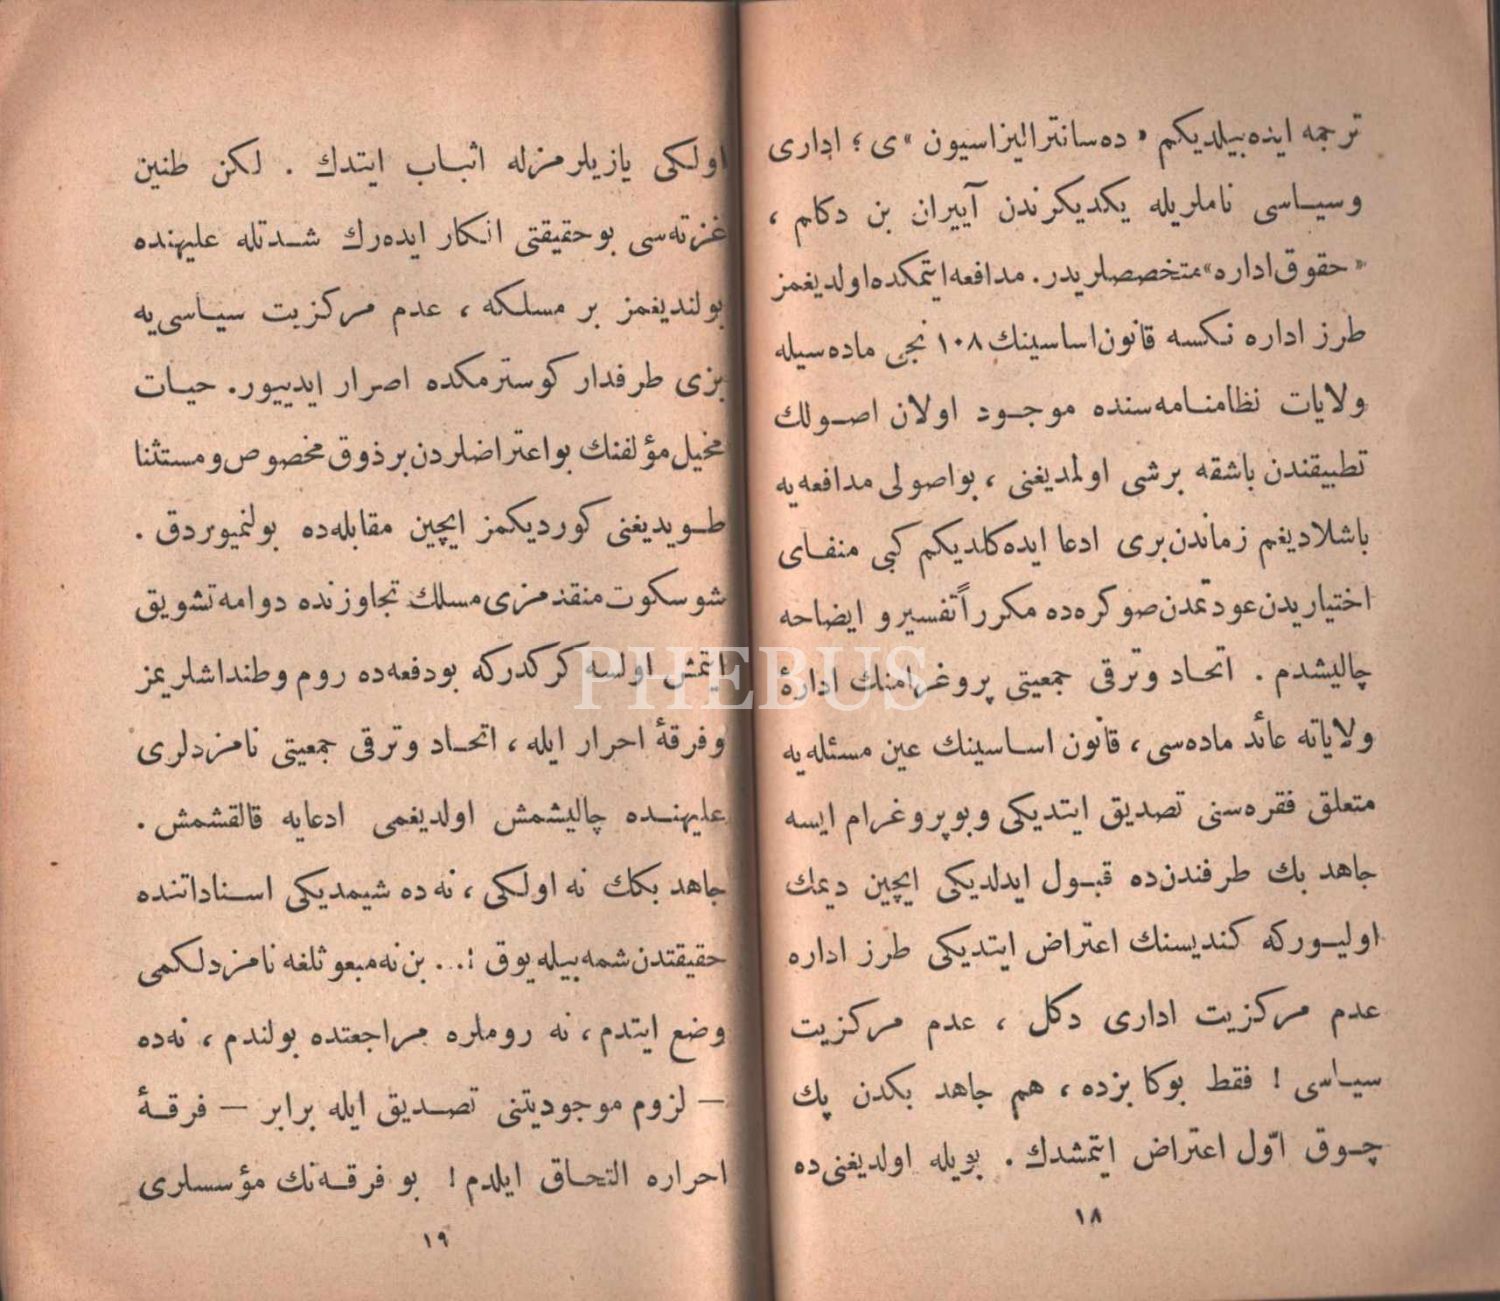 ترجمه ايده بيلديكم « ده سانتراليزاسيون » ى ؛ ادارى
وسياسى ناملريله يكديكرندن آييران بن دكلم ،
« حقوق اداره » متخصصلريدر . مدافعه ايتمكده اولديغمز
طرز اداره نكسه قانون اساسينك ١٠٨ نجى ماده سيله
ولايات نظامنامه سنده موجود اولان اصولك
تطبيقندن باشقه برشى اولمديغنى ، بو اصولى مدافعه يه
باشلاديغم زماندن برى ادعا ايده كلديكم كبى منفاى
اختياريدن عودتمدن صوكره ده مكرراً تفسير و ايضاحه
چاليشدم . اتحاد وترقى جمعيتى پروغرامنك ادارۀ
ولاياته عائد ماده سى ، قانون اساسينك عين مسئله يه
متعلق فقره سنى تصديق ايتديكى وبو پروغرام ايسه
جاهد بك طرفندن ده قبول ايدلديكى ايچين ديمك
اوليوركه كنديسنك اعتراض ايتديكى طرز اداره
عدم مركزيت ادارى دكل ، عدم مركزيت
سياسى ! فقط بوكا بزده ، هم جاهد بكدن پك
چوق اوّل اعتراض ايتمشدك . بويله اولديغنى ده
١٨
اولكى يازيلرمزله اثبات ايتدك . لكن طنين
غزته سى بوحقيقتى انكار ايده رك شدتله عليهنده
بولنديغمز بر مسلكه ، عدم مركزيت سياسى يه
بزى طرفدار كوسترمكده اصرار ايدييور . حيات
مخيل مؤلفنك بو اعتراضلردن بر ذوق مخصوص ومستثنا
طويديغنى كورديكمز ايچين مقابله ده بولنميوردق .
شو سكوت منقذمزى مسلك تجاوزنده دوامه تشويق
ايتمش اولسه كركدركه بودفعه ده روم وطنداشلريمز
وفرقۀ احرار ايله ، اتحاد وترقى جمعيتى نامزدلرى
عليهنده چاليشمش اولديغمى ادعايه قالقشمش .
جاهد بكك نه اولكى ، نه ده شيمديكى اسناداتنده
حقيقتدن شمه بيله يوق !... بن نه مبعوثلغه نامزدلكمى
وضع ايتدم ، نه روملره مراجعتده بولندم ، نه ده
— لزوم موجوديتنى تصديق ايله برابر — فرقۀ
احراره التحاق ايلدم ! بو فرقه نك مؤسسلرى
١٩
PHEBUS